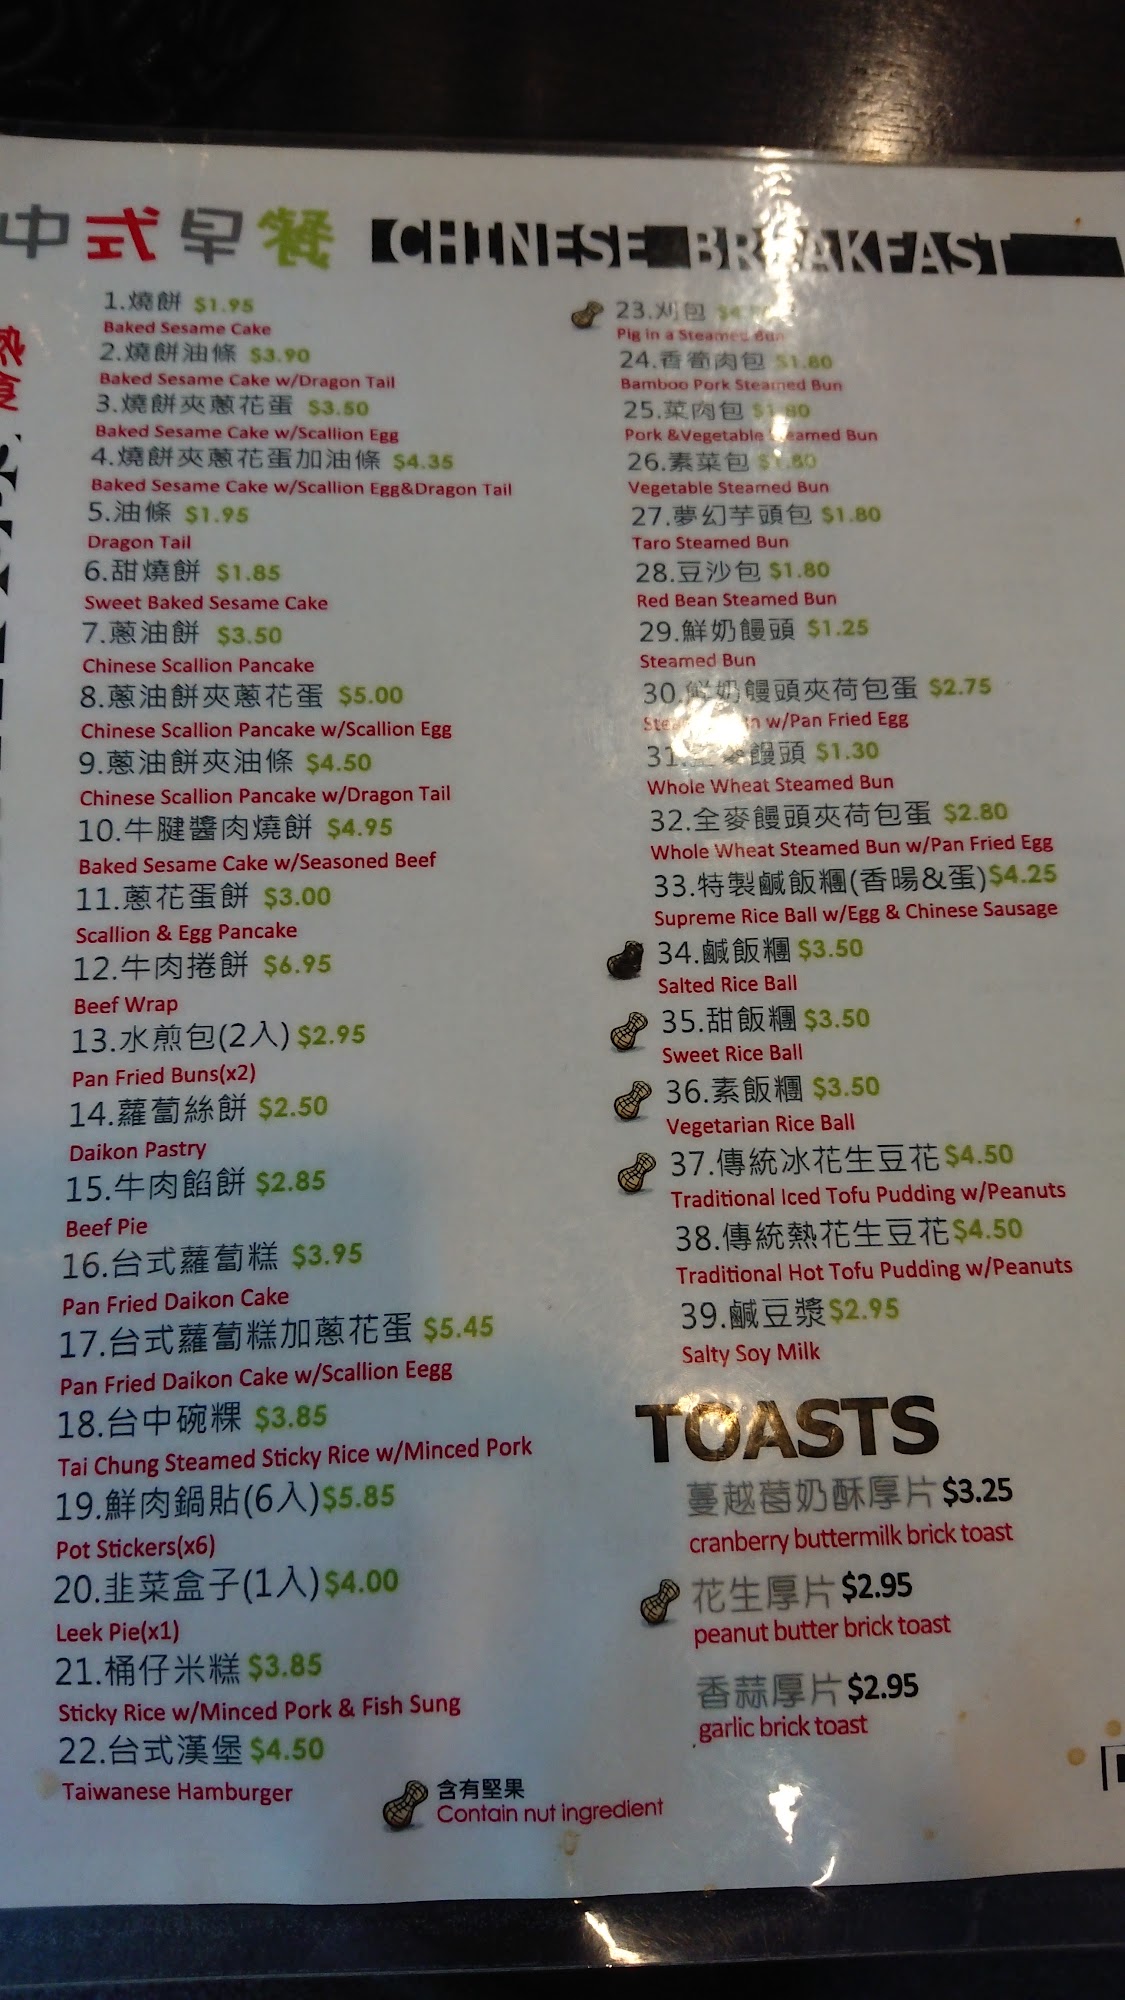 中式早餐 CHINESE BREAKFAST
1.燒餅 $1.95
Baked Sesame Cake
2.燒餅油條 $3.90
Baked Sesame Cake w/Dragon Tail
3.燒餅夾蔥花蛋 $3.50
Baked Sesame Cake w/Scallion Egg
4.燒餅夾蔥花蛋加油條 $4.35
Baked Sesame Cake w/Scallion Egg&Dragon Tail
5.油條 $1.95
Dragon Tail
6.甜燒餅 $1.85
Sweet Baked Sesame Cake
7.蔥油餅 $3.50
Chinese Scallion Pancake
8.蔥油餅夾蔥花蛋 $5.00
Chinese Scallion Pancake w/Scallion Egg
9.蔥油餅夾油條 $4.50
Chinese Scallion Pancake w/Dragon Tail
10.牛腱醬肉燒餅 $4.95
Baked Sesame Cake w/Seasoned Beef
11.蔥花蛋餅 $3.00
Scallion & Egg Pancake
12.牛肉捲餅 $6.95
Beef Wrap
13.水煎包(2入) $2.95
Pan Fried Buns(x2)
14.蘿蔔絲餅 $2.50
Daikon Pastry
15.牛肉餡餅 $2.85
Beef Pie
16.台式蘿蔔糕 $3.95
Pan Fried Daikon Cake
17.台式蘿蔔糕加蔥花蛋 $5.45
Pan Fried Daikon Cake w/Scallion Eegg
18.台中碗粿 $3.85
Tai Chung Steamed Sticky Rice w/Minced Pork
19.鮮肉鍋貼(6入)$5.85
Pot Stickers(x6)
20.韭菜盒子(1入)$4.00
Leek Pie(x1)
21.桶仔米糕 $3.85
Sticky Rice w/Minced Pork & Fish Sung
22.台式漢堡 $4.50
Taiwanese Hamburger
23.刈包
Pig in a Steamed Bun
24.香筍肉包 $1.80
Bamboo Pork Steamed Bun
25.菜肉包 $1.80
Pork &Vegetable Steamed Bun
26.素菜包 $1.80
Vegetable Steamed Bun
27.夢幻芋頭包 $1.80
Taro Steamed Bun
28.豆沙包 $1.80
Red Bean Steamed Bun
29.鮮奶饅頭 $1.25
Steamed Bun
30.鮮奶饅頭夾荷包蛋 $2.75
Steamed Bun w/Pan Fried Egg
31.全麥饅頭 $1.30
Whole Wheat Steamed Bun
32.全麥饅頭夾荷包蛋 $2.80
Whole Wheat Steamed Bun w/Pan Fried Egg
33.特製鹹飯糰(香腸&蛋)$4.25
Supreme Rice Ball w/Egg & Chinese Sausage
34.鹹飯糰 $3.50
Salted Rice Ball
35.甜飯糰 $3.50
Sweet Rice Ball
36.素飯糰 $3.50
Vegetarian Rice Ball
37.傳統冰花生豆花 $4.50
Traditional Iced Tofu Pudding w/Peanuts
38.傳統熱花生豆花 $4.50
Traditional Hot Tofu Pudding w/Peanuts
39.鹹豆漿 $2.95
Salty Soy Milk
TOASTS
蔓越莓奶酥厚片 $3.25
cranberry buttermilk brick toast
花生厚片 $2.95
peanut butter brick toast
香蒜厚片 $2.95
garlic brick toast
含有堅果
Contain nut ingredient